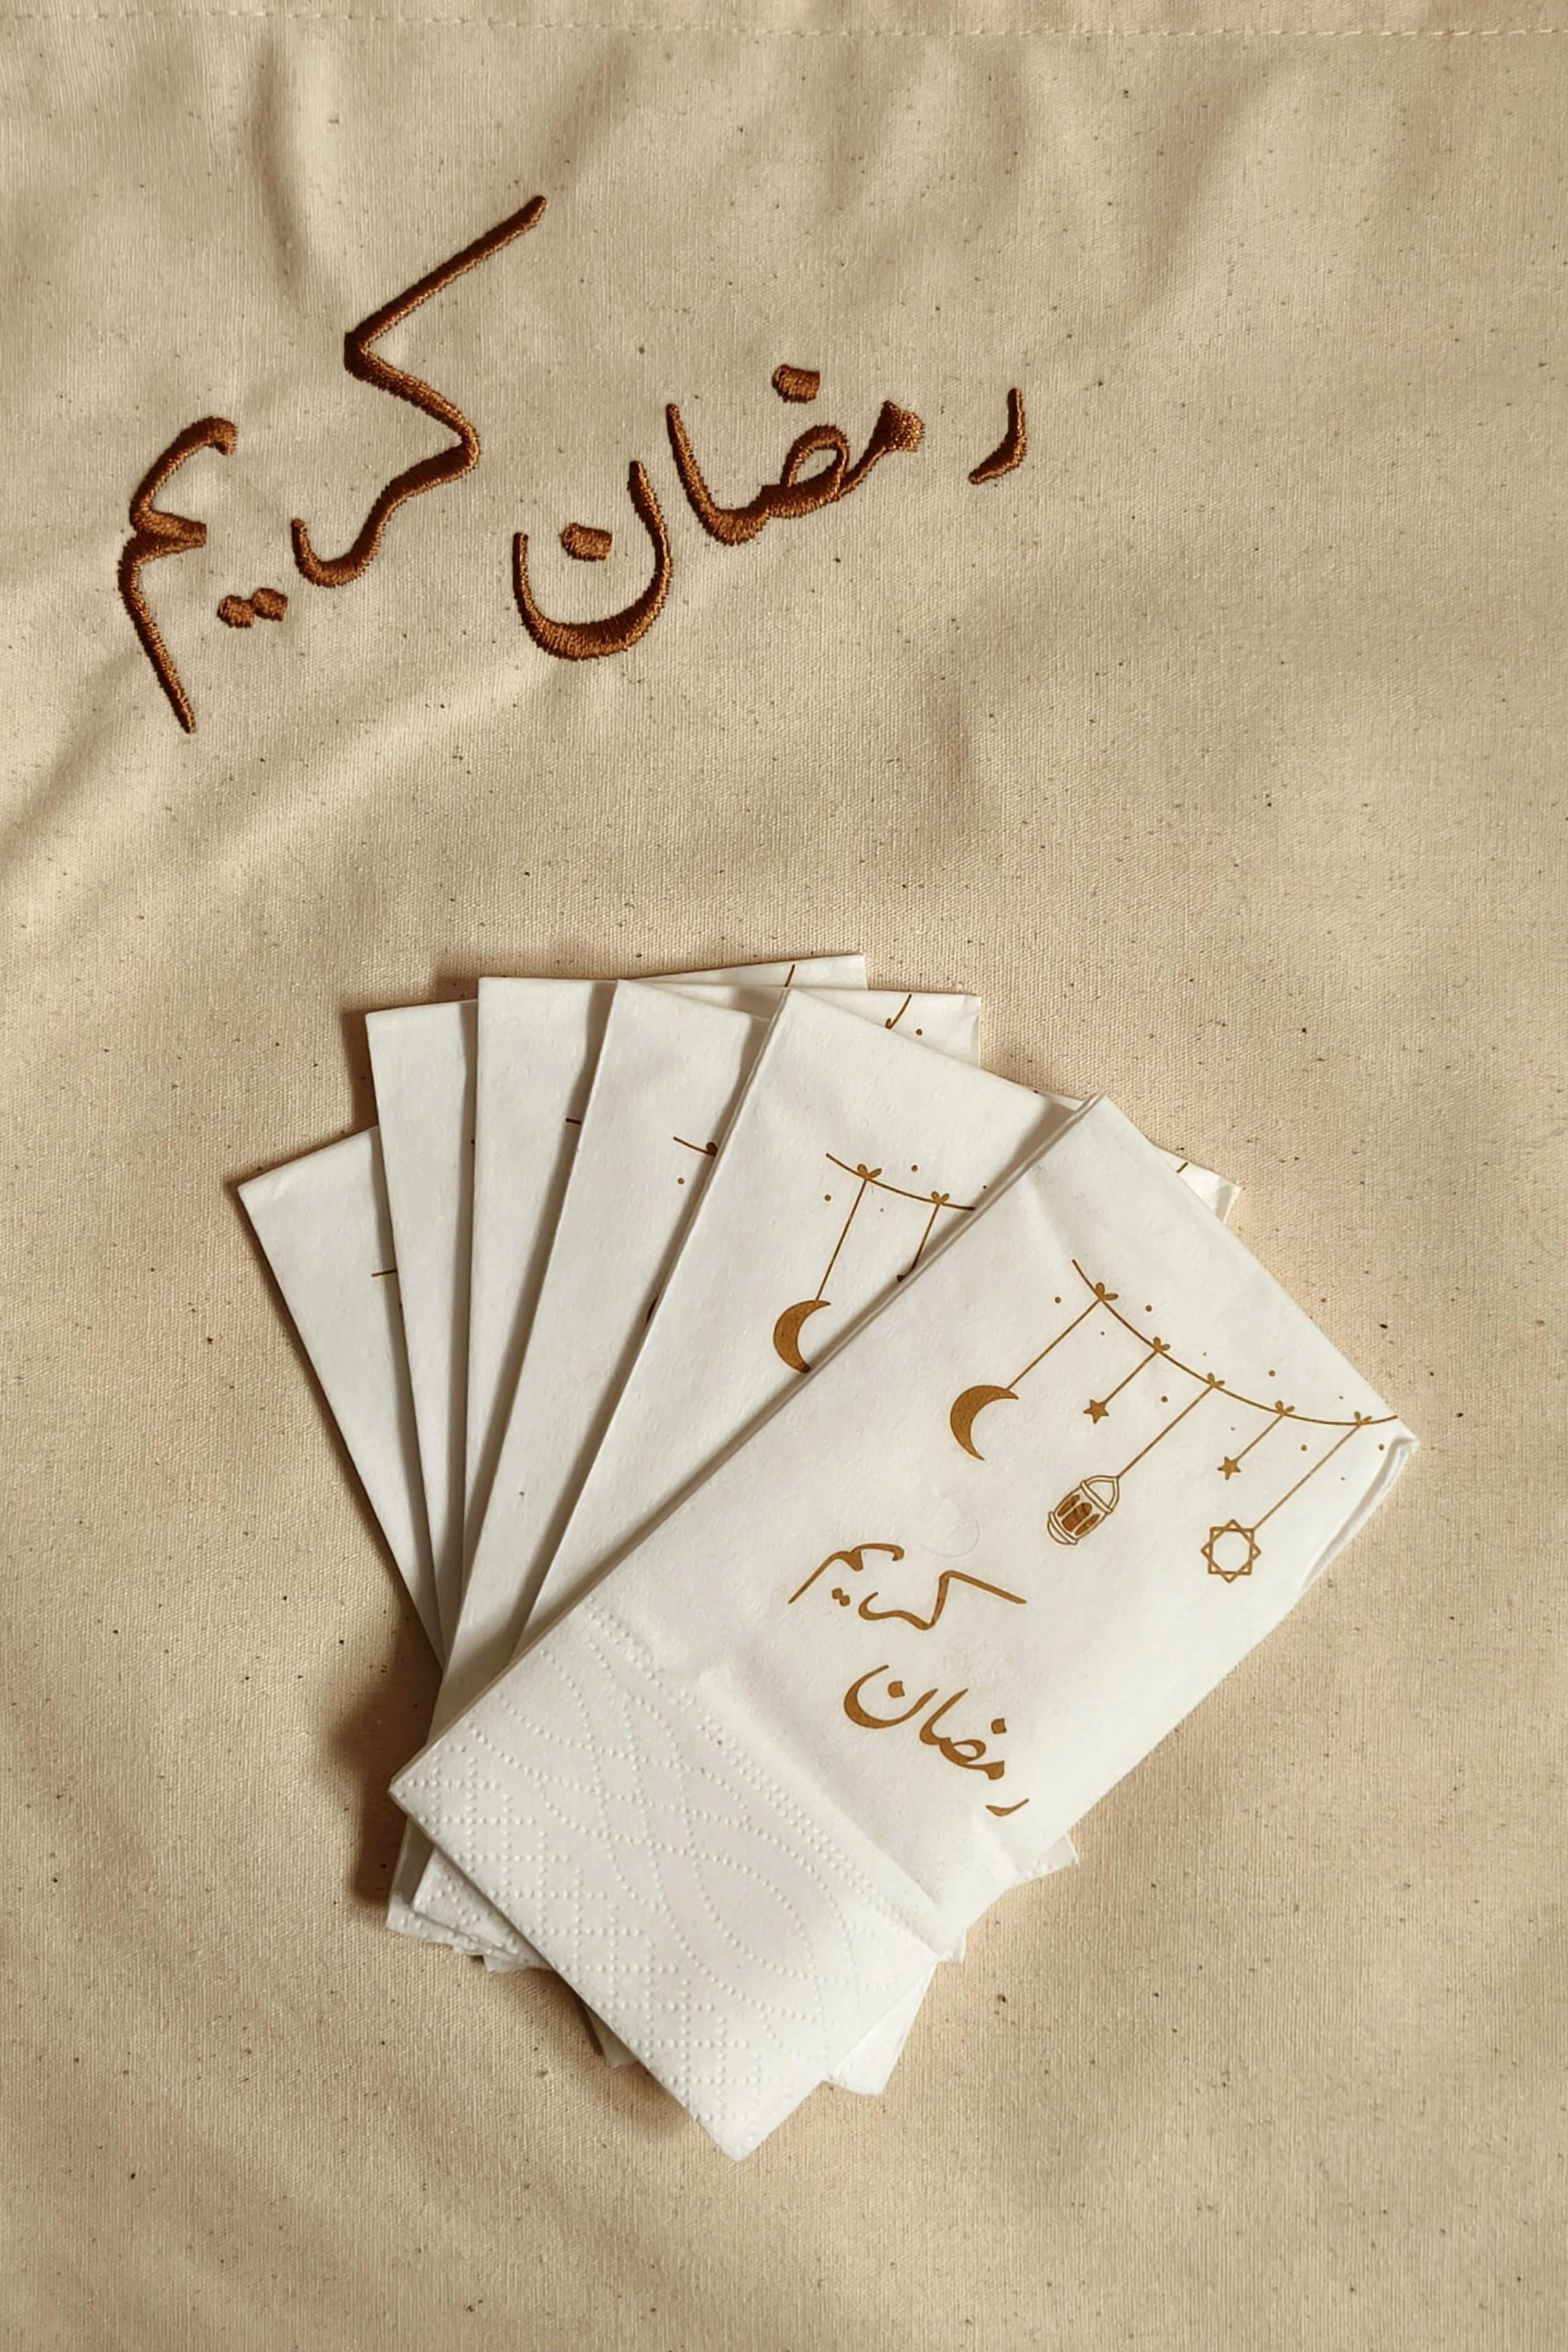 رمضان كريم
كريم
رمضان